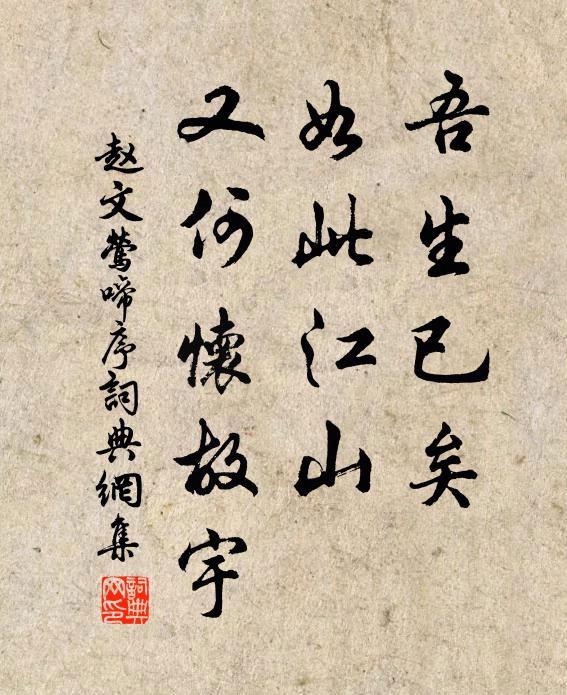 吾生已矣
如此江山
又何懷故宇
赵文鶯啼序詞典網集
詞典网印